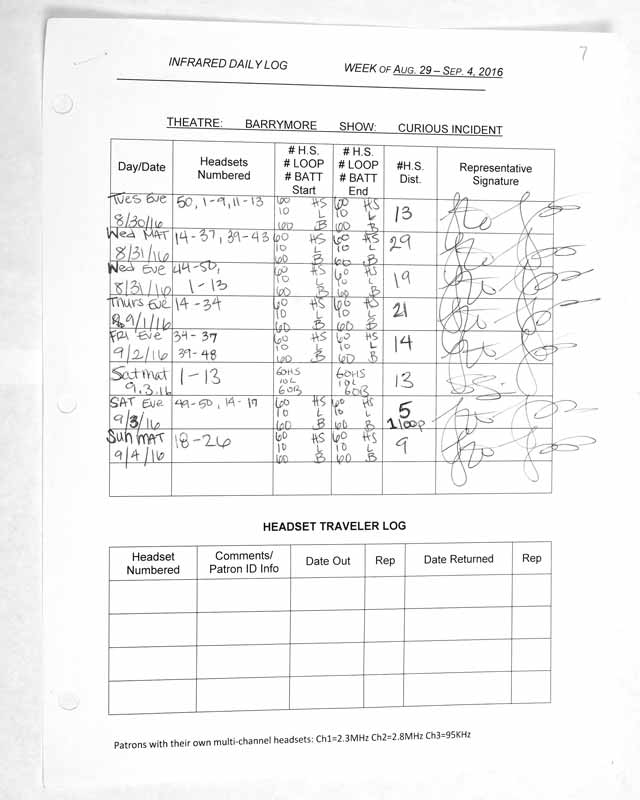 7
INFRARED DAILY LOG WEEK OF AUG. 29 – SEP. 4, 2016
THEATRE: BARRYMORE SHOW: CURIOUS INCIDENT
Day/Date Headsets Numbered # H.S. # LOOP # BATT Start # H.S. # LOOP # BATT End #H.S. Dist. Representative Signature
Tues Eve 8/30/16 50, 1-9, 11-13 60 HS 10 L 60 B 60 HS 10 L 60 B 13
Wed MAT 8/31/16 14-37, 39-43 60 HS 10 L 60 B 60 HS 10 L 60 B 29
Wed Eve 8/31/16 44-50, 1-13 60 HS 10 L 60 B 60 HS 10 L 60 B 19
Thurs Eve 9/1/16 14-34 60 HS 10 L 60 B 60 HS 10 L 60 B 21
FRI Eve 9/2/16 34-37 39-48 60 HS 10 L 60 B 60 HS 10 L 60 B 14
Sat mat 9.3.16 1-13 60HS 10L 60B 60HS 10L 60B 13
SAT Eve 9/3/16 49-50, 14-17 60 HS 10 L 60 B 60 HS 10 L 60 B 5 1 loop
Sun MAT 9/4/16 18-26 60 HS 10 L 60 B 60 HS 10 L 60 B 9
HEADSET TRAVELER LOG
Headset Numbered Comments/ Patron ID Info Date Out Rep Date Returned Rep
Patrons with their own multi-channel headsets: Ch1=2.3MHz Ch2=2.8MHz Ch3=95KHz